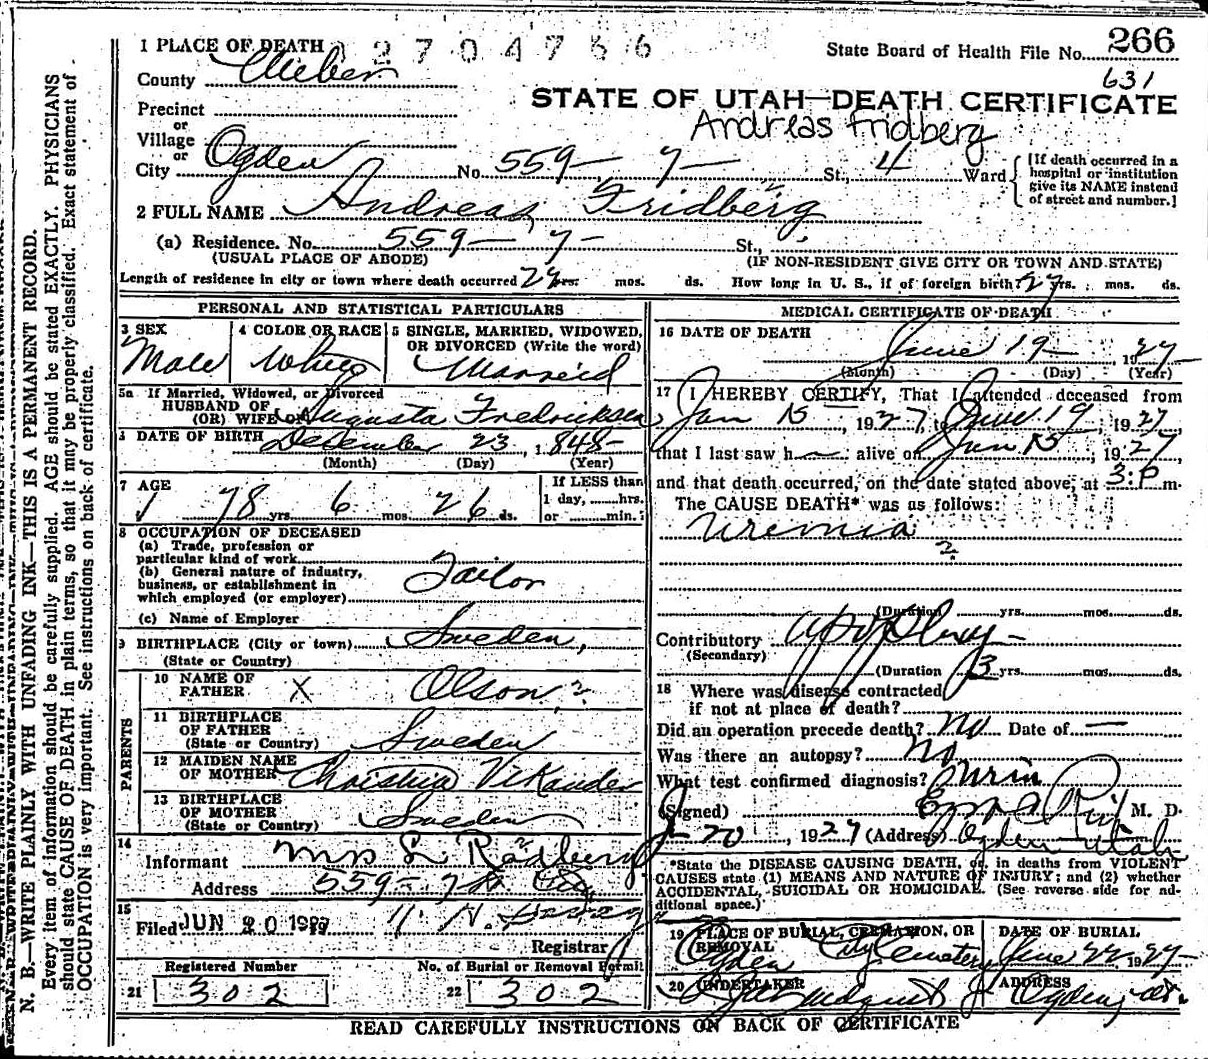 1 PLACE OF DEATH 2704756
State Board of Health File No. 266
County Weber
631
STATE OF UTAH—DEATH CERTIFICATE
Precinct
Andreas Fridberg
or
Village
or
City Ogden No. 559 - 7 - St., 4 Ward
[If death occurred in a hospital or institution give its NAME instead of street and number.]
2 FULL NAME Andreas Fridberg
(a) Residence. No. 559 - 7 - St.,
(USUAL PLACE OF ABODE) (IF NON-RESIDENT GIVE CITY OR TOWN AND STATE)
Length of residence in city or town where death occurred yrs. mos. ds. How long in U. S., if of foreign birth? yrs. mos. ds.
PERSONAL AND STATISTICAL PARTICULARS
3 SEX Male
4 COLOR OR RACE White
5 SINGLE, MARRIED, WIDOWED,
OR DIVORCED (Write the word)
Married
5a If Married, Widowed, or Divorced
HUSBAND OF
(OR) WIFE OF Augusta Fredrickson
DATE OF BIRTH December 23, 1848
(Month) (Day) (Year)
7 AGE 78 yrs. 6 mos. 26 ds.
If LESS than
1 day, hrs.
or min.?
8 OCCUPATION OF DECEASED
(a) Trade, profession or
particular kind of work
(b) General nature of industry,
business, or establishment in
which employed (or employer) Tailor
(c) Name of Employer
9 BIRTHPLACE (City or town) Sweden,
(State or Country)
PARENTS
10 NAME OF
FATHER X Olson ?
11 BIRTHPLACE
OF FATHER
(State or Country) Sweden
12 MAIDEN NAME
OF MOTHER Christina Vikander
13 BIRTHPLACE
OF MOTHER
(State or Country) Sweden
14
Informant Mrs L Radberg
Address 559 - 7th
15
Filed JUN 20 1927
Registrar
Registered Number
21 302
No. of Burial or Removal Permit
22 302
MEDICAL CERTIFICATE OF DEATH
16 DATE OF DEATH
June 19 1927
(Month) (Day) (Year)
17 I HEREBY CERTIFY, That I attended deceased from
Jan 15 1927, to June 19, 1927,
that I last saw h alive on Jun 15, 1927
and that death occurred, on the date stated above, at 3:P m.
The CAUSE DEATH* was as follows:
Uremia
?
(Duration yrs. mos. ds.
Contributory Apoplexy
(Secondary)
(Duration 3 yrs. mos. ds.
18 Where was disease contracted
if not at place of death?
Did an operation precede death? No Date of —
Was there an autopsy? No
What test confirmed diagnosis? Urin
(Signed) M. D.
6-20, 1927 (Address) Ogden Utah
*State the DISEASE CAUSING DEATH, or, in deaths from VIOLENT
CAUSES state (1) MEANS AND NATURE OF INJURY; and (2) whether
ACCIDENTAL, SUICIDAL OR HOMICIDAL. (See reverse side for ad-
ditional space.)
19 PLACE OF BURIAL, CREMATION, OR
REMOVAL
Ogden City Cemetery
DATE OF BURIAL
June 22 1927
20 UNDERTAKER
ADDRESS
Ogden, Ut.
READ CAREFULLY INSTRUCTIONS ON BACK OF CERTIFICATE
N. B.—WRITE PLAINLY WITH UNFADING INK—THIS IS A PERMANENT RECORD.
Every item of information should be carefully supplied. AGE should be stated EXACTLY. PHYSICIANS
should state CAUSE OF DEATH in plain terms, so that it may be properly classified. Exact statement of
OCCUPATION is very important. See instructions on back of certificate.